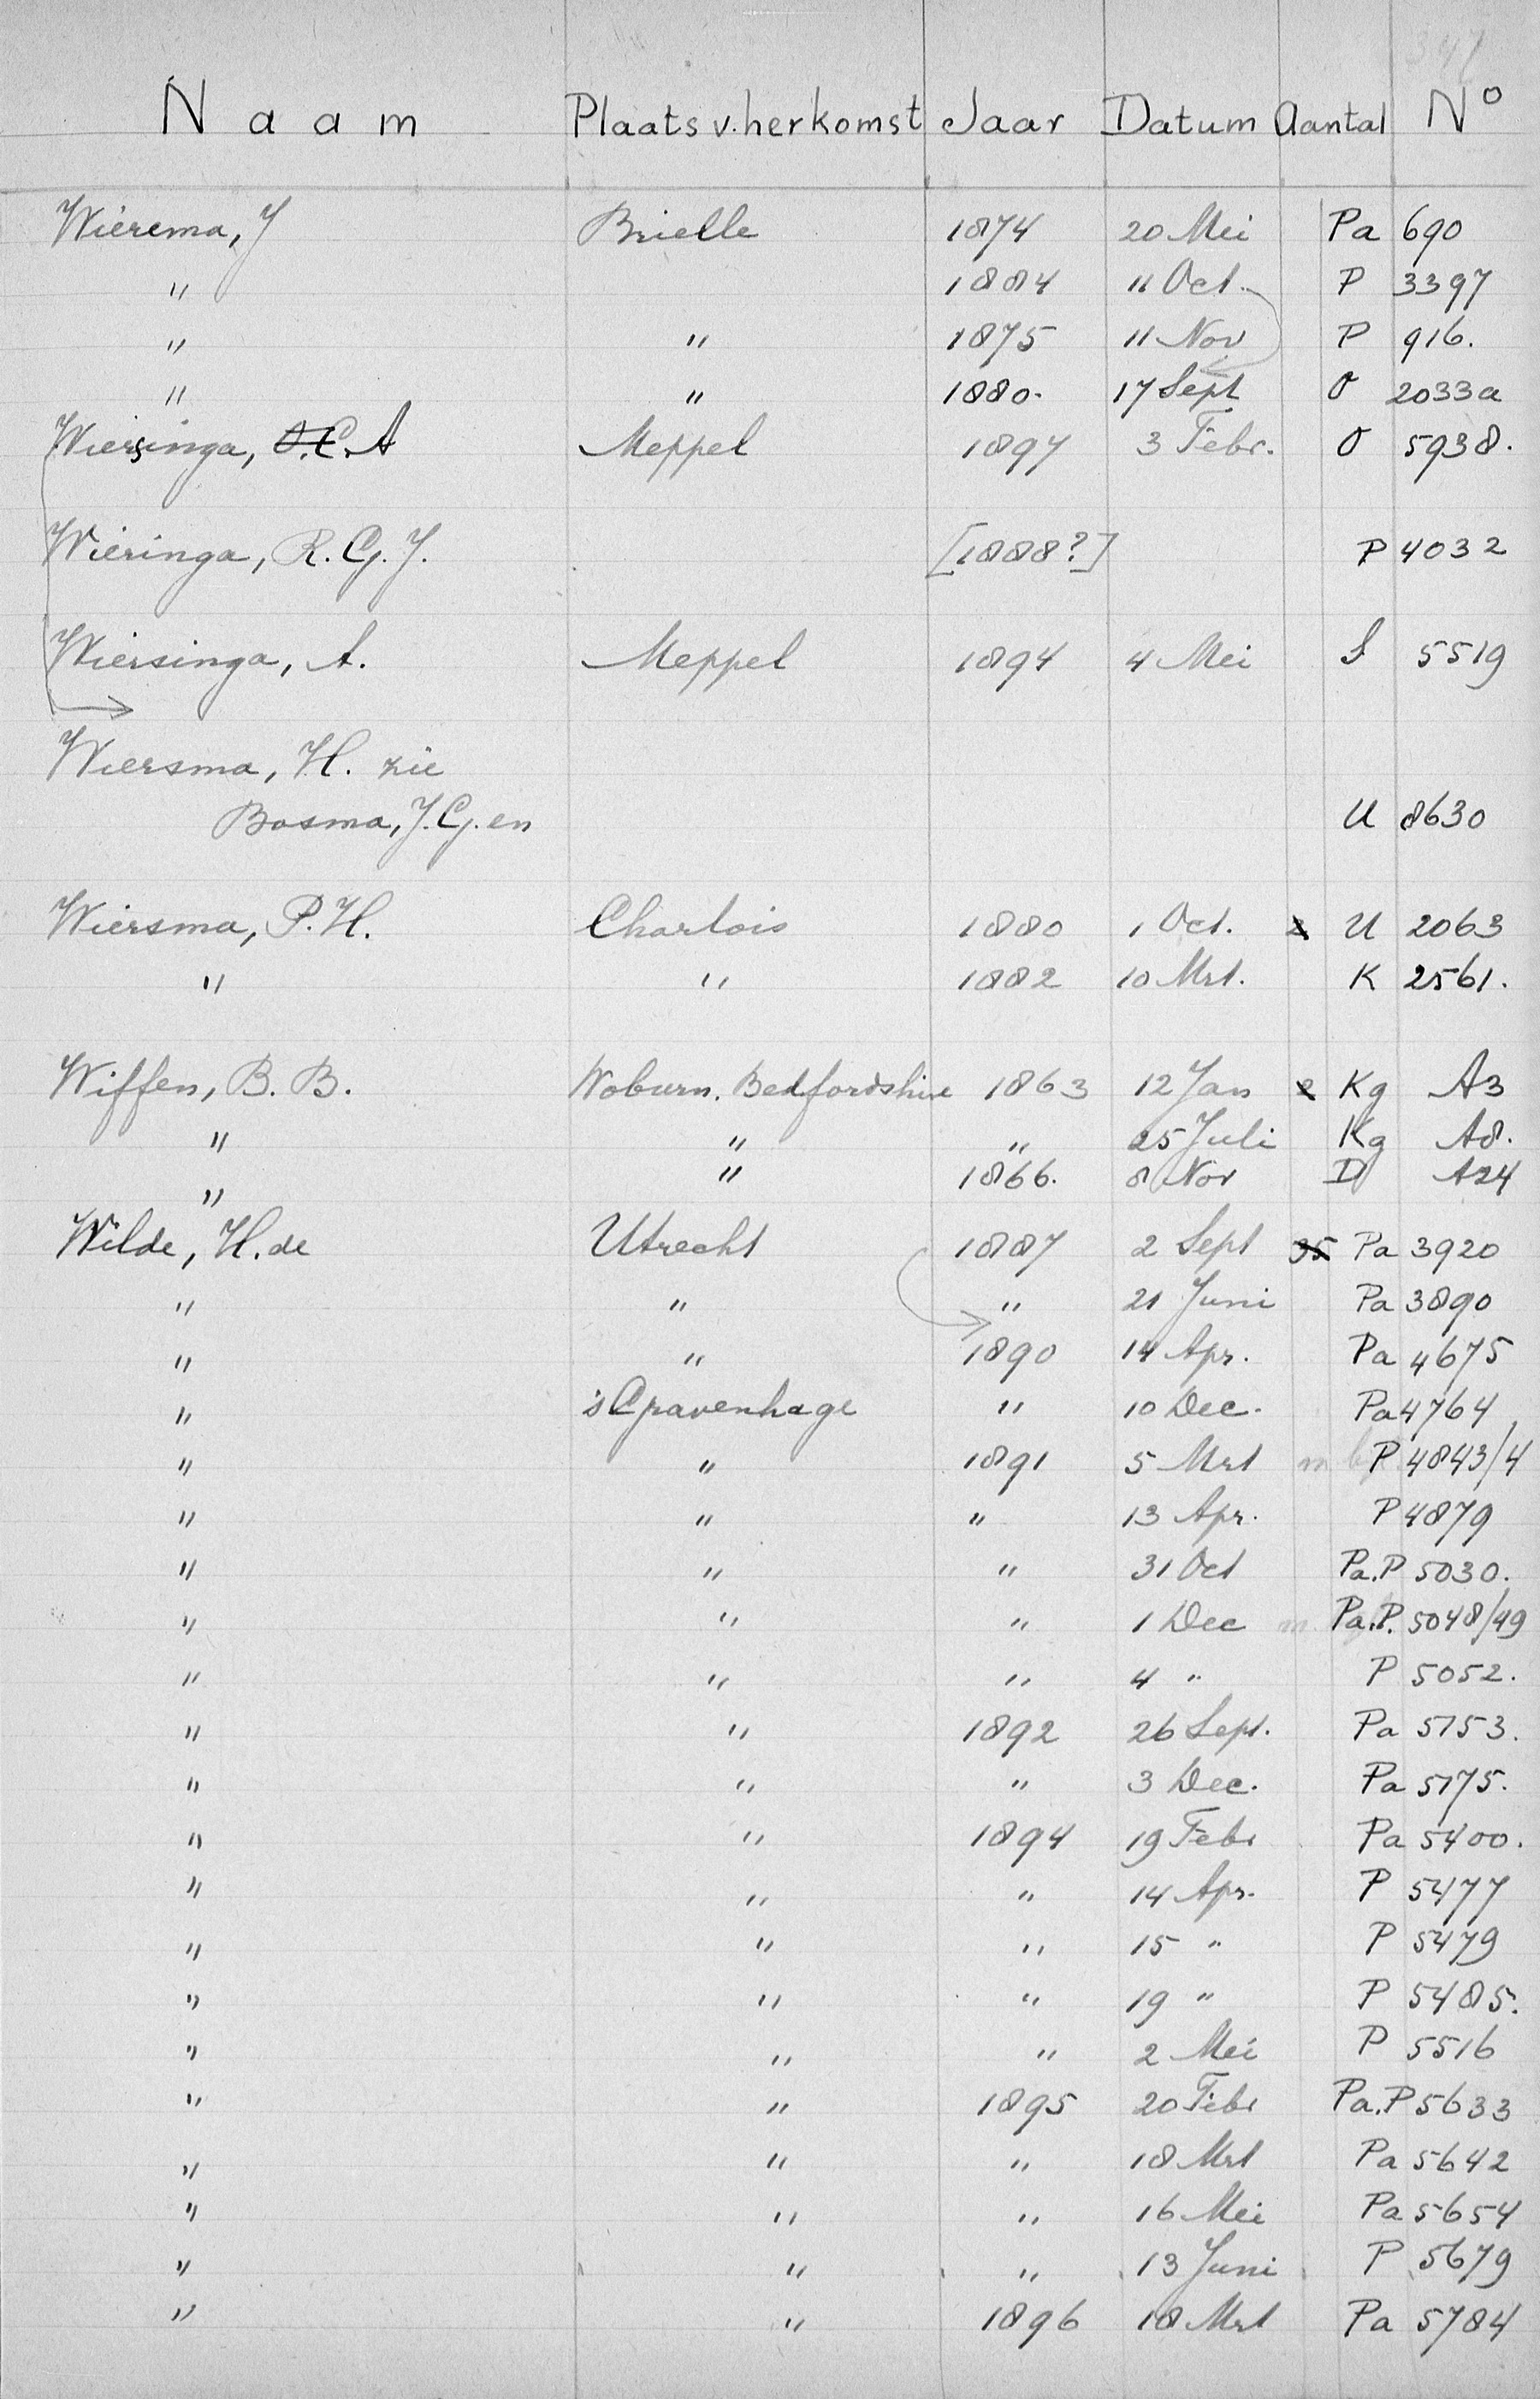 347
Naam Plaats v. herkomst Jaar Datum Aantal No
Wierema, J Brielle 1874 20 Mei Pa 690
" 1884 11 Oct. P 3397
" " 1875 11 Nov P 916.
" " 1880. 17 Sept O 2033a
Wiersinga, O.C. A Meppel 1897 3 Febr. O 5938.
Wieringa, R. G. J. [1888?] P 4032
Wiersinga, A. Meppel 1894 4 Mei S 5519
Wiersma, H. zie
Bosma, J. G. en U 8630
Wiersma, P. H. Charlois 1880 1 Oct. 2 U 2063
" " 1882 10 Mrt. K 2561.
Wiffen, B. B. Woburn. Bedfordshire 1863 12 Jan 2 Kg A3
" " " 25 Juli Kg A8.
" " 1866. 8 Nov D A24
Wilde, H. de Utrecht 1887 2 Sept 35 Pa 3920
" " " 21 Juni Pa 3890
" " 1890 14 Apr. Pa 4675
" 's Gravenhage " 10 Dec. Pa 4764
" " 1891 5 Mrt m P 4843/4
" " " 13 Apr. P 4879
" " " 31 Oct Pa. P 5030.
" " " 1 Dec m Pa. P. 5048/49
" " " 4 " P 5052.
" " 1892 26 Sept. Pa 5153.
" " " 3 Dec. Pa 5175.
" " 1894 19 Febr Pa 5400.
" " " 14 Apr. P 5477
" " " 15 " P 5479
" " " 19 " P 5485.
" " " 2 Mei P 5516
" " 1895 20 Febr Pa. P 5633
" " " 18 Mrt Pa 5642
" " " 16 Mei Pa 5654
" " " 13 Juni P 5679
" " 1896 18 Mrt Pa 5784